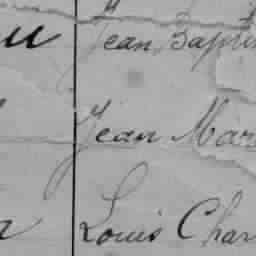 Jean Bapti
Jean Mar
Louis Char